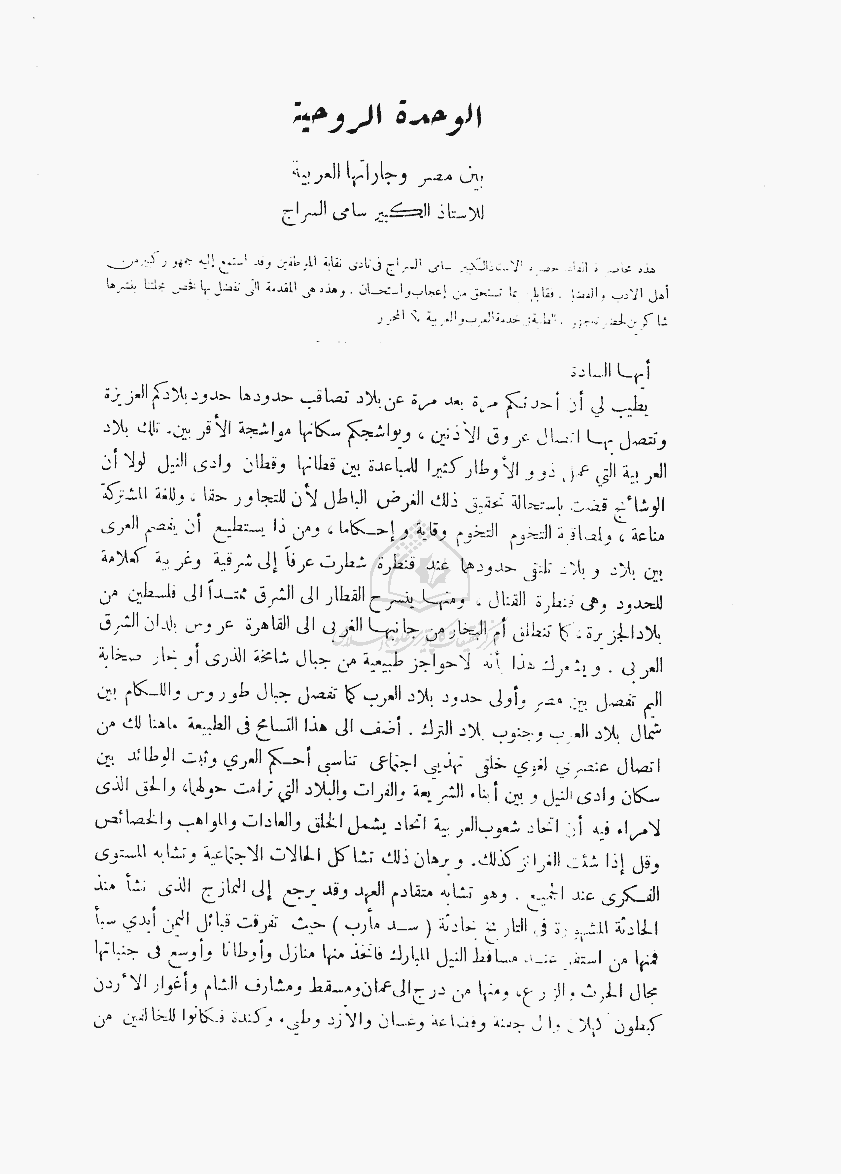 الوحدة الروحية
بين مصر وجاراتها العربية
للاستاذ الكبير سامى السراج
هذه محاضرة ألقاها حضرة الاستاذ الكبير سامى السراج فى نادى نقابة الموظفين وقد استمع إليه جمهور كبير من
أهل الادب والفضل. فقابلها بما تستحق من إعجاب واستحسان. وهذه هى المقدمة التى تفضل بها لخص مجلتنا بنشرها
شاكرين لحضرته خدمة العرب والعربية المحرر
أيها السادة
يطيب لي أن أحدثكم مرة بعد مرة عن بلاد تصاقب حدودها حدود بلادكم العزيزة
وتتصل بها اتصال عروق الأذنين ، ويواشجكم سكانها مواشجة الأقربين. تلك بلاد
العربية التي عمل ذوو الأوطار كثيرا للمباعدة بين قطانها وقطان وادى النيل لولا أن
الوشائج قضت باستحالة تحقيق ذلك الغرض الباطل لأن للتجاور حقا ، وللغة المشتركة
مناعة ، ولمصاقبة التخوم التخوم وقاية وإحكاما ، ومن ذا يستطيع أن يفصم العرى
بين بلاد وبلاد تلتقى حدودها عند قنطرة شطرت عرفاً إلى شرقية وغربية كعلامة
للحدود وهى قنطرة القنال ، ومنها ينسرح القطار الى الشرق ممتداً الى فلسطين من
بلاد الجزيرة. كما تنطلق أم البخار من جانبها الغربى الى القاهرة عروس بلدان الشرق
العربى . ويشعرك هذا أنه لا حواجز طبيعية من جبال شامخة الذرى أو بحار صخابة
اليم تفصل بين مصر وأولى حدود بلاد العرب كما تفصل جبال طوروس واللكام بين
شمال بلاد العرب وجنوب بلاد الترك . أضف الى هذا التسامح فى الطبيعة ماهنا لك من
اتصال عنصري لغوي خلقى تهذيبى اجتماعى تناسى أحكم العري وثبت الوطائد بين
سكان وادى النيل وبين أبناء الشريعة والفرات والبلاد التي ترامت حولهما، والحق الذى
لامراء فيه أن اتحاد شعوب العربية اتحاد يشمل الخلق والعادات والمواهب والخصائص
وقل إذا شئت الغرائز كذلك. وبرهان ذلك تشاكل الحالات الاجتماعية وتشابه المستوى
الفكرى عند الجميع . وهو تشابه متقادم العهد وقد يرجع إلى التمازج الذى نشأ منذ
الحادثة المشهورة فى التاريخ بحادثة ( سد مأرب ) حيث تفرقت قبائل اليمن أيدي سبأ
فمنها من استقر عند مساقط النيل المبارك فاتخذ منها منازل وأوطانا وأوسع فى جنباتها
مجال الحرث والزرع، ومنها من درج الى عمان ومسقط ومشارف الشام وأغوار الأردن
كبطون كهلان وال جفنة وقضاعة وغسان والأزد وطيء وكندة فكانوا للخالفين من